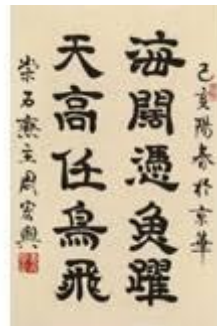 己亥陽春於京華
海闊憑魚躍
天高任鳥飛
柴石齋主周宏興